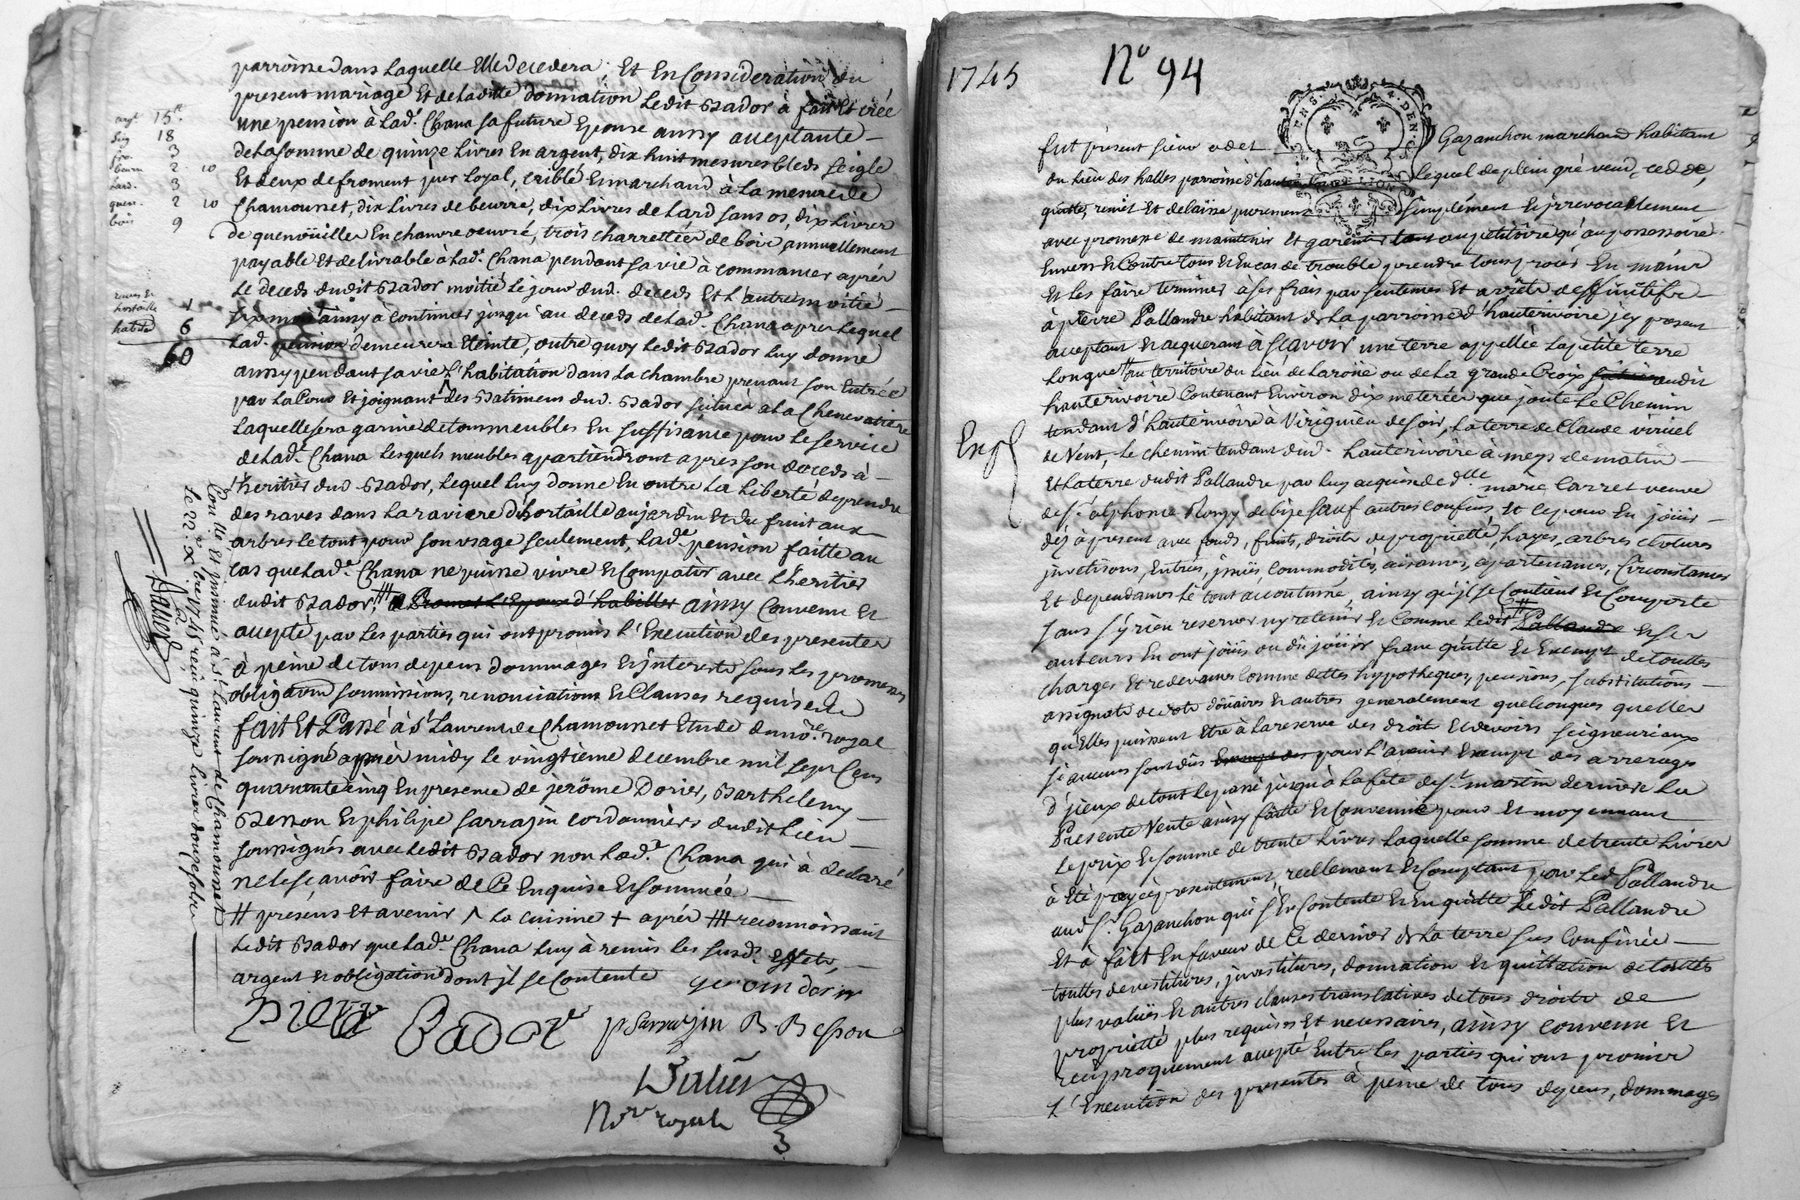 parroisse dans Laquelle Elle decedera, Et En Consideration du
present mariage Et de laditte donnation Ledit Bador à fait Et créé
une pension à Lad.e Chana sa future Epouse aussy aceptante
de la somme de quinze Livres En argent, dix huit mesures bleds seigle
Et deux de froment pur Loyal, criblé Et marchand à La mesure de
Chamousset, dix Livres de beurre, dix Livres de Lard sans os, dix Livres
de quenoüilles En chanvre oeuvré, trois charrettées de bois, annuellement
payable Et delivrable à Lad.e Chana pendant sa vie à commancer après
Le deceds dudit Bador moitié Le jour dud. deceds Et L'autre moitié
six mois ainsy à continuer jusqu'au deceds de Lad.e Chana apres Lequel
Lad.e pension demeurera Eteinte, outre quoy Ledit Bador Luy donne
aussy pendant sa vie L'habitation dans La chambre prenant son Entrée
par La Cour Et joignant Les Batimens dud. Bador située a La Chenevatiere
Laquelle sera garnie de tous meubles En suffisance pour Le service
de Lad.e Chana Lesquels meubles apartiendront apres son deceds à
L'heritier dud Bador, Lequel Luy donne En outre La Liberté de prendre
des raves dans La raviere d'hortaille au jardin Et du fruit aux
arbres Le tout pour son usage seulement, Lad.e pension faitte au
cas que Lad.e Chana ne puisse vivre Et Compatir avec L'heritier
dudit Bador, # Promet L'Epoux d'habiller ainsy Convenu Et
accepté par Les parties qui ont promis L'Execution des presentes
à peine de tous depens dommages Et interets sous Les promesses
obligaõns soumissions, renonciations Et Clauses requises
fait Et Passé à St Laurent de Chamousset Etude du nõre royal
soussigné après midy Le vingtième decembre mil sept Cens
quarante cinq En presence de jerôme Dorier, Barthelemy
Besson Et philipe Sarrazin cordonniers dudit Lieu
soussignés avec Ledit Bador non Lad.e Chana qui à declaré
ne le sçavoir faire de Ce Enquise Et sommée
# presens Et avenir ^ La cuisine + aprés ⧻ reconnoissant
Ledit Bador que Lad.e Chana Luy à remis Les susd. Effets,
argent Et obligations dont jl se Contente gerom dorier
Bador p Sarrazin B Besson
Nore royal
argt 15
sig 18
fro. 3
beurre 2 10
Lard. 3
quen. 2 10
bois 9
raves Et
hortaille 1
habitõn 6
60
Con.lle Et insinué à St Laurent de Chamousset
Le 22.e Xbre 1745 reçu quinze Livres douze sols
1745 No 94
DEN.
LION
fut présent sieur odet Gazanchon marchand habitant
du Lieu des halles parroisse d'haute Lequel de plein gré vend, cedde,
quitte, remet Et delaisse purement simplement Et irrevocablement
avec promesse de maintenir Et garentir tant au petitoire qu'au possessoire
Envers Et Contre tous Et En cas de trouble prendre tous procès En mains
Et Les faire terminer à ses frais par sentences Et arrêts deffinitifs
à pierre Pallandre habitant de La parroisse d'hauterivoire jcy present
acceptant Et acquerant à sçavoir une terre appellée La petite terre
Longue # au territoire du Lieu de ou de La grande Croix audit
hauterivoire Contenant Environ dix meterées que joute Le Chemin
tendant d'hauterivoire à Virignieu de soir, La terre de Claude viricel
de Vent, Le chemin tendant dud. hauterivoire à meys de matin
Et La terre dudit Pallandre par Luy acquise de d.lle marie Carret veuve
de s.r alphonse de bize sauf autres confins Et ce pour En joüir
dez à present avec fonds, fruits, droits de proprietté, hayes, arbres clotures
Entrées, jssües, Commodités, aisances, apartenances, Circonstances
Et dependances Le tout accoutumé, ainsy qu'jl se Contient Et Comporte
sans s'y rien reserver ny retenir Et Comme Ledit # Pallandre Et ses
auteurs En ont joüis ou dû joüir franc quitte Et Exempt de touttes
charges Et redevances Comme dettes hypotheques, pensions, substitutions
assignats de dote doüaires Et autres generalement quelconques quelles
qu'Elles puissent Etre à La reserve des droits Et devoirs seigneuriaux
si aucuns sont dûs Exempt des pour L'avenir Exempt des arrerages
d'jceux de tout Le passé jusqu'à La fête de St martin derniere La
Presente Vente ainsy faitte Et Convenüe pour Et moyennant
Le prix Et somme de trente Livres Laquelle somme de trente Livres
à Eté payée presentement, reellement Et Comptant par Led Pallandre
aud s.r Gazanchon qui s'En Contente Et En quitte Ledit Pallandre
Et à fait En faveur de Ce dernier de La terre sus Confinée
touttes devestitures, jnvestitures, donnation Et quittation de touttes
plus values Et autres clauses translatives de tous droits de
proprietté plus requises Et necessaires, ainsy convenu Et
reciproquement accepté Entre Les parties qui ont promis
L'Execution des presentes à peine de tous depens, dommages